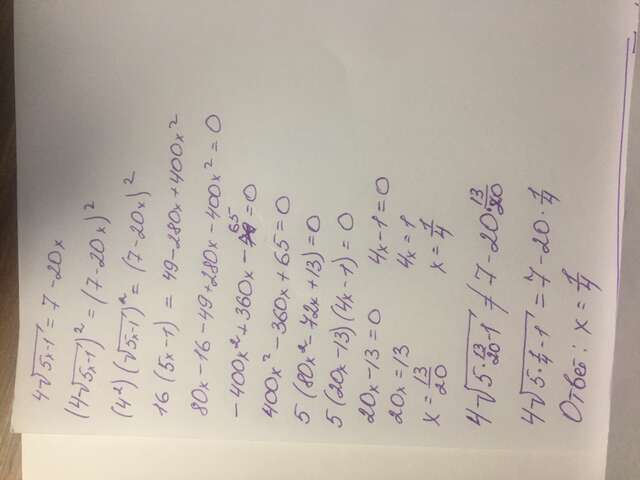 4√(5x-1) = 7 - 20x
(4√(5x-1))² = (7-20x)²
(4²)(√(5x-1))² = (7-20x)²
16(5x-1) = 49-280x+400x²
80x-16-49+280x-400x²=0
-400x²+360x-65=0
400x²-360x+65=0
5(80x²-72x+13)=0
5(20x-13)(4x-1)=0
20x-13=0 4x-1=0
20x=13 4x=1
x=13/20 x=1/4
4√(5·13/20-1) ≠ 7-20·13/20
4√(5·1/4-1) = 7-20·1/4
Ответ: x=1/4